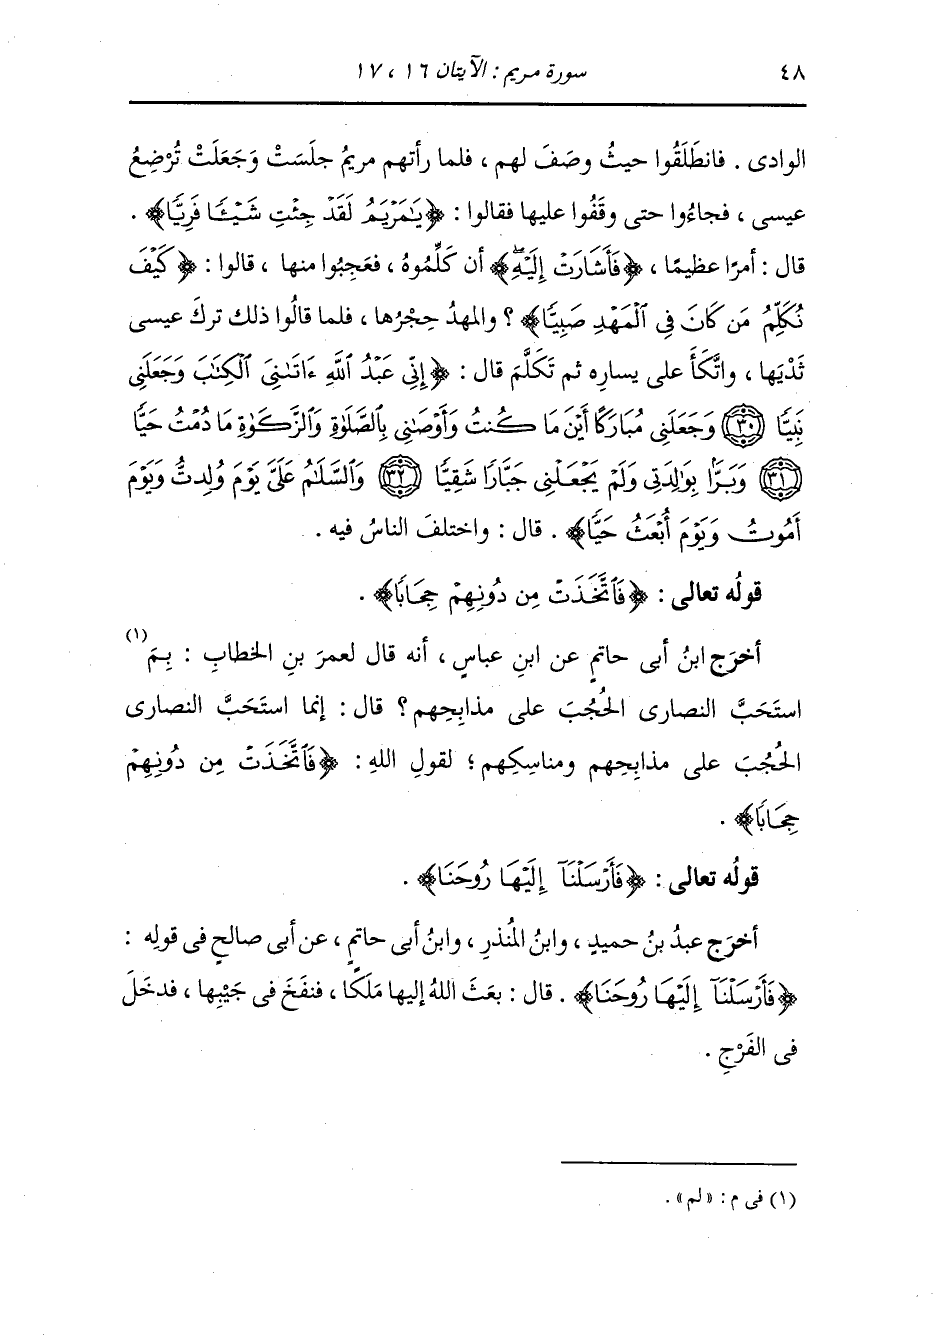 ٤٨ سورة مريم : الآيتان ١٦ ، ١٧
الوادى . فانطَلَقُوا حيثُ وصَفَ لهم ، فلما رأتهم مريمُ جلَسَتْ وَجَعَلَتْ تُرْضِعُ
عيسى ، فجاءُوا حتى وقَفُوا عليها فقالوا : ﴿يَٰمَرۡيَمُ لَقَدۡ جِئۡتِ شَيۡـٔٗا فَرِيّٗا﴾ .
قال : أمرًا عظيمًا ، ﴿فَأَشَارَتۡ إِلَيۡهِۖ﴾ أن كَلِّمُوهُ ، فعَجِبُوا منها ، قالوا : ﴿كَيۡفَ
نُكَلِّمُ مَن كَانَ فِي ٱلۡمَهۡدِ صَبِيّٗا﴾ ؟ والمهدُ حِجْرُها ، فلما قالُوا ذلك تركَ عيسى
ثَدْيَها ، واتَّكَأَ على يسارِه ثم تَكلَّمَ قال : ﴿إِنِّي عَبۡدُ ٱللَّهِ ءَاتَىٰنِيَ ٱلۡكِتَٰبَ وَجَعَلَنِي
نَبِيّٗا ٣٠ وَجَعَلَنِي مُبَارَكًا أَيۡنَ مَا كُنتُ وَأَوۡصَٰنِي بِٱلصَّلَوٰةِ وَٱلزَّكَوٰةِ مَا دُمۡتُ حَيّٗا
٣١ وَبَرَّۢا بِوَٰلِدَتِي وَلَمۡ يَجۡعَلۡنِي جَبَّارٗا شَقِيّٗا ٣٢ وَٱلسَّلَٰمُ عَلَيَّ يَوۡمَ وُلِدتُّ وَيَوۡمَ
أَمُوتُ وَيَوۡمَ أُبۡعَثُ حَيّٗا﴾ . قال : واختلفَ الناسُ فيه .
قولُه تعالى : ﴿فَٱتَّخَذَتۡ مِن دُونِهِمۡ حِجَابٗا﴾ .
أخرَج ابنُ أبى حاتمٍ عن ابنِ عباسٍ ، أنه قال لعمرَ بنِ الخطابِ : بِمَ(١)
استَحَبَّ النصارى الحُجُبَ على مذابِحِهم ؟ قال : إنما استَحَبَّ النصارى
الحُجُبَ على مذابِحِهم ومناسِكِهم ؛ لقولِ اللهِ : ﴿فَٱتَّخَذَتۡ مِن دُونِهِمۡ
حِجَابٗا﴾ .
قولُه تعالى : ﴿فَأَرۡسَلۡنَآ إِلَيۡهَا رُوحَنَا﴾ .
أخرَج عبدُ بنُ حميدٍ ، وابنُ المُنذرِ ، وابنُ أبى حاتمٍ ، عن أبى صالحٍ فى قولِه :
﴿فَأَرۡسَلۡنَآ إِلَيۡهَا رُوحَنَا﴾ . قال : بعَثَ اللهُ إليها مَلَكًا ، فنفَخَ فى جَيْبِها ، فدخَلَ
فى الفَرْجِ .
(١) فى م : «لم» .